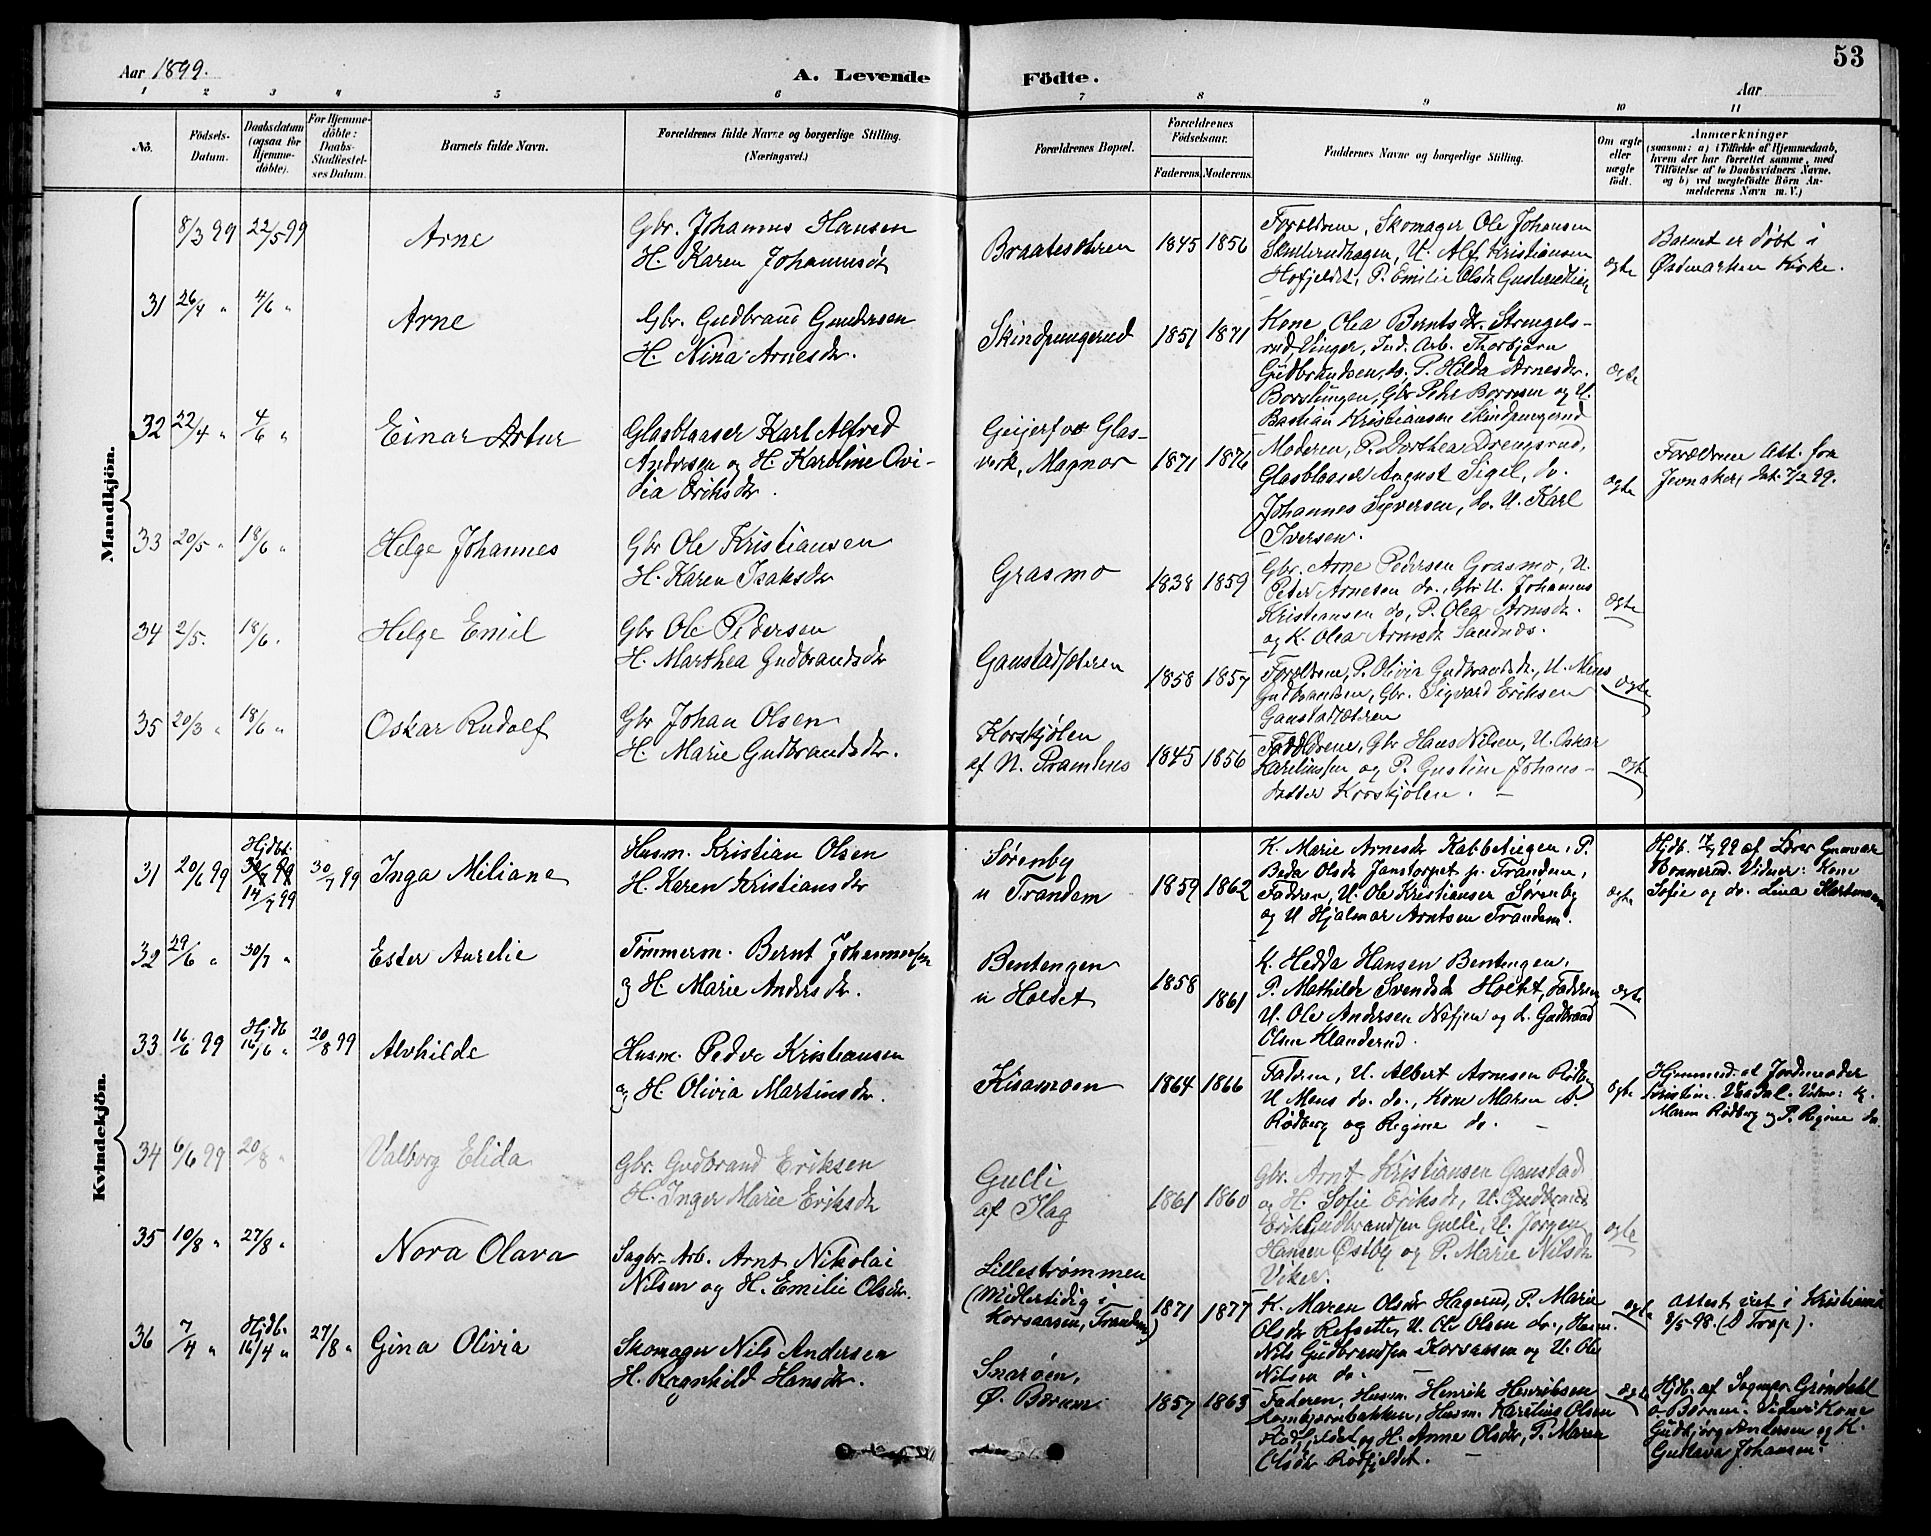 53
Aar 1899.
A. Levende
Födte.
Aar
1 2 3 4 5 6 7 8 9 10 11
No.
Födsels-
Datum.
Daabsdatum
(ogsaa for
Hjemme-
döbte).
For Hjemme-
döbte:
Daabs-
Stadfæstel-
ses Datum.
Barnets fulde Navn.
Forældrenes fulde Navne og borgerlige Stilling.
(Næringsvei.)
Forældrenes Bopæl.
Forældrenes
Födselsaar.
Faderens. Moderens.
Faddernes Navne og borgerlige Stilling.
Om ægte
eller
uægte
födt.
Anmærkninger
(saasom: a) i Tilfælde af Hjemmedaab,
hvem der har forrettet samme, med
Tilföielse af to Daabsvidners Navne.
og b) ved uægtefödte Börn An-
melderens Navn m. V.)
Mandkjön.
8/3 99 22/5 99
Arne
Gbr. Johannes Hansen
H. Karen Johannesdt
Braatesæteren
1845 1856
Forældrene, Skomager Ole Johansen
Skulerudhagen, U. Alf Kristiansen
Hofjeldet, P. Emilie Olsdr
ægte
Barnet er døbt i
Østmarken Kirke.
31 26/4 " 4/6 "
Arne
Gbr. Gudbrand Gundersen
H. Nina Arnesdr.
Skindpungerud
1851 1871
Kone Olea Berntsdr. Strengels-
rud, Vinger, Ind. Arb. Thorbjørn
Gudbrandsen, do. P. Hilda Arnesdr.
Gbr Peder og U.
Bastian Kristiansen Skindpungerud
ægte
32 22/4 " 4/6 "
Einar Artur
Glasblaaser Karl Alfred
Andersen og H. Karoline Ovi-
dia Eriksdr.
Geijerfos Glas-
værk, Magnor
1871 1876
Moderen, P. Dorthea Drengsrud,
Glasblaaser August Sigel, do.
Johannes Syversen, do. U. Karl
Iversen.
ægte
Forældrene Att. fra
Jevnaker, dat. 7/2 99.
33 20/5 " 18/6 "
Helge Johannes
Gbr Ole Kristiansen
H. Karen Isaksdr
Grasmo
1838 1859
Gbr. Arne Pedersen Grasmo, U.
Peter Arnesen do., Gbr U. Johannes
Kristiansen do, P. Olea Arnesdr.
og K. Olea Arnesdr Sandnæs.
ægte
34 2/5. 18/6.
Helge Emil
Gbr Ole Pedersen
H. Marthea Gudbrandsdr
Gaustadsæteren
1858 1857
Forældrene, P. Olivia Gudbrandsdr., U. Nils
Gudbrandsen, Gbr. Sigvard Eriksen
Gaustadsæteren
ægte
35 20/3 " 18/6 "
Oskar Rudolf
Gbr Johan Olsen
H. Marie Gudbrandsdr.
Korskjølen
af N.
1845 1856
Forældrene, Gbr Hans Nilsen, U. Oskar
Kareliussen og P. Gustine Johans-
datter Korskjølen. -
ægte
Kvindekjön.
31 20/6 99
Hjdbt.
14/7 99
30/7 99
Inga Miliane
Husm. Kristian Olsen
H. Karen Kristiansdr
Sørenby
u Trandem
1859 1862
K. Marie Arnesdr Kabbetiegen, P.
Beda Olsdr Janstorpet p. Trandem,
Faderen, U. Ole Kristiansen Sørenby
og U Hjalmar Arntsen Trandem.
ægte
Hjdb. 14/7 99 af Lærer Gunnar
Bonnerud. Vidner: Kone
Sofie og do. Lina Hartmann
32 29/6 " 30/7 "
Ester Aurelie
Tømmerm. Bernt Johannessen
og H. Marie Andersdr.
Bentengen
u Holtet
1858 1861
K. Hedda Hansen Bentengen,
P. Mathilde Svendsdr Holtet, Faderen
U. Ole Andersen og U. Gudbrand
Olsen Klanderud.
ægte
33 16/6 99
Hjdb
16/6 "
20/8 99
Alvhilde
Husm. Peder Kristiansen
og H. Olivia Martinsdr.
Kisamoen
1864 1866
Faderen, U. Albert Arnesen Rødberg
U Mons do. do., Kone Maren A.
Rødberg og Regine do. -
ægte
Hjemmed. af Jordmoder
Kristine Vaadal. Vidner: K.
Maren Rødberg og P. Regine do.
34 6/6 99 20/8 "
Valborg Elida
Gbr. Gudbrand Eriksen
H. Inger Marie Eriksdr
Gulli
af Hag
1861 1860
Gbr. Arnt Kristiansen Gaustad
og H. Sofie Eriksdr, U. Gudbrand
Erik Gudbrandsen Gulli, U. Jørgen
Hansen Østby og P. Marie Nilsdr
Viker.
ægte
35 10/8 " 27/8 "
Nora Olava
Sagbr.-Arb. Arnt Nikolai
Nilsen og H. Emilie Olsdr.
Lillestrømmen
(Midlertidig i
Korsaasen, Trandem)
1871 1877
K. Maren Olsdr Hagerud, P. Marie
Olsdr Refsette, U. Ole Olsen do., Husm.
Nils Gudbrandsen Korsaasen og U. Ole
Nilsen do. -
ægte
Attest i Kristiania
9/5 98
36 7/4 "
Hjdb.
16/4 "
27/8 "
Gina Olivia
Skomager Nils Andersen
H. Ragnhild Hansdr.
Snarøen,
Ø. Bærum
1857 1863
Faderen, Husm. Henrik Henriksen
Husm. Karelius Olsen
Rødfjeldet og H. Anne Olsdr, P. Maren
Olsdr Rødfjeldet.
ægte
Hjdb. af Sognepr. Grøndahl
i Bærum. Vidner: Kone
Gudbjørg Andersen og K.
Gustava Johansen.